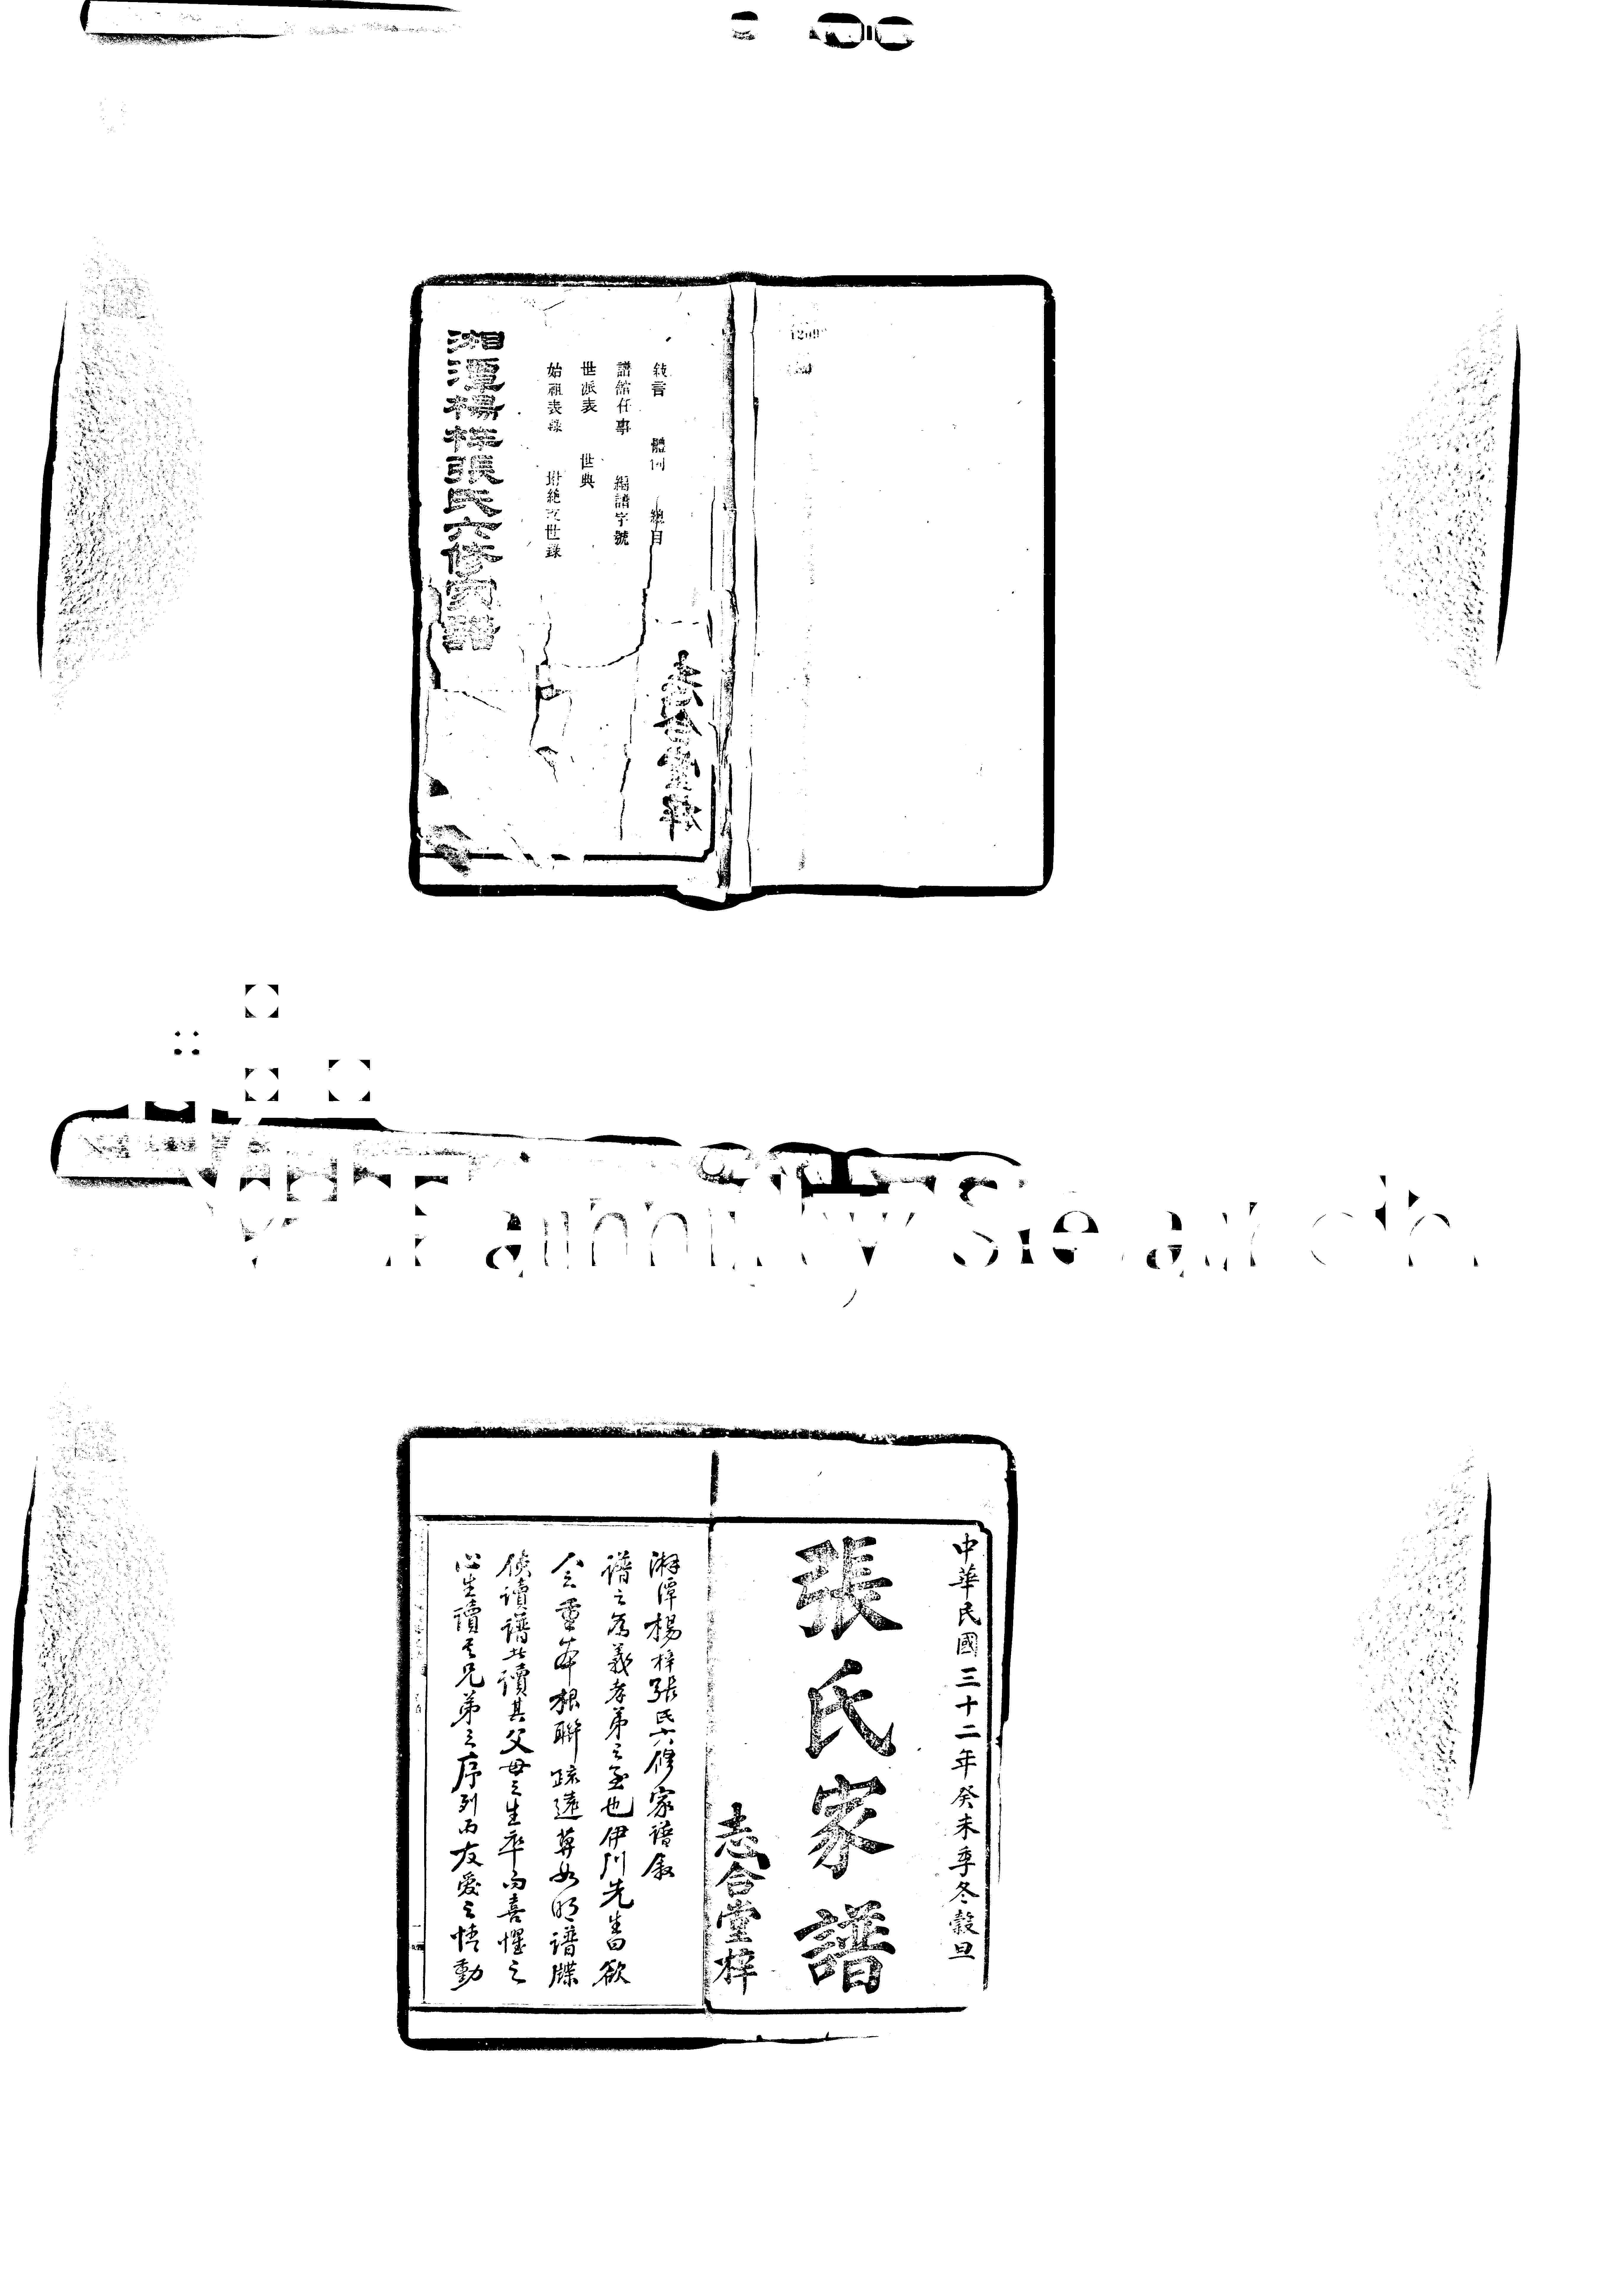 湘潭楊梓張氏六修家譜
敘言 體例 總目
譜館任事 編譜字號
世派表 世典
始祖表錄 世錄
志合堂梓
FamilySearch
中華民國三十二年癸未季冬穀旦
張氏家譜
志合堂梓
湘潭楊梓張氏六修家譜敘
譜之為義孝弟之至也伊川先生曰欲
人重本根聯疏遠莫如明譜牒
使讀譜者讀其父母之生卒而喜懼之
心生讀其兄弟之序列而友愛之情動